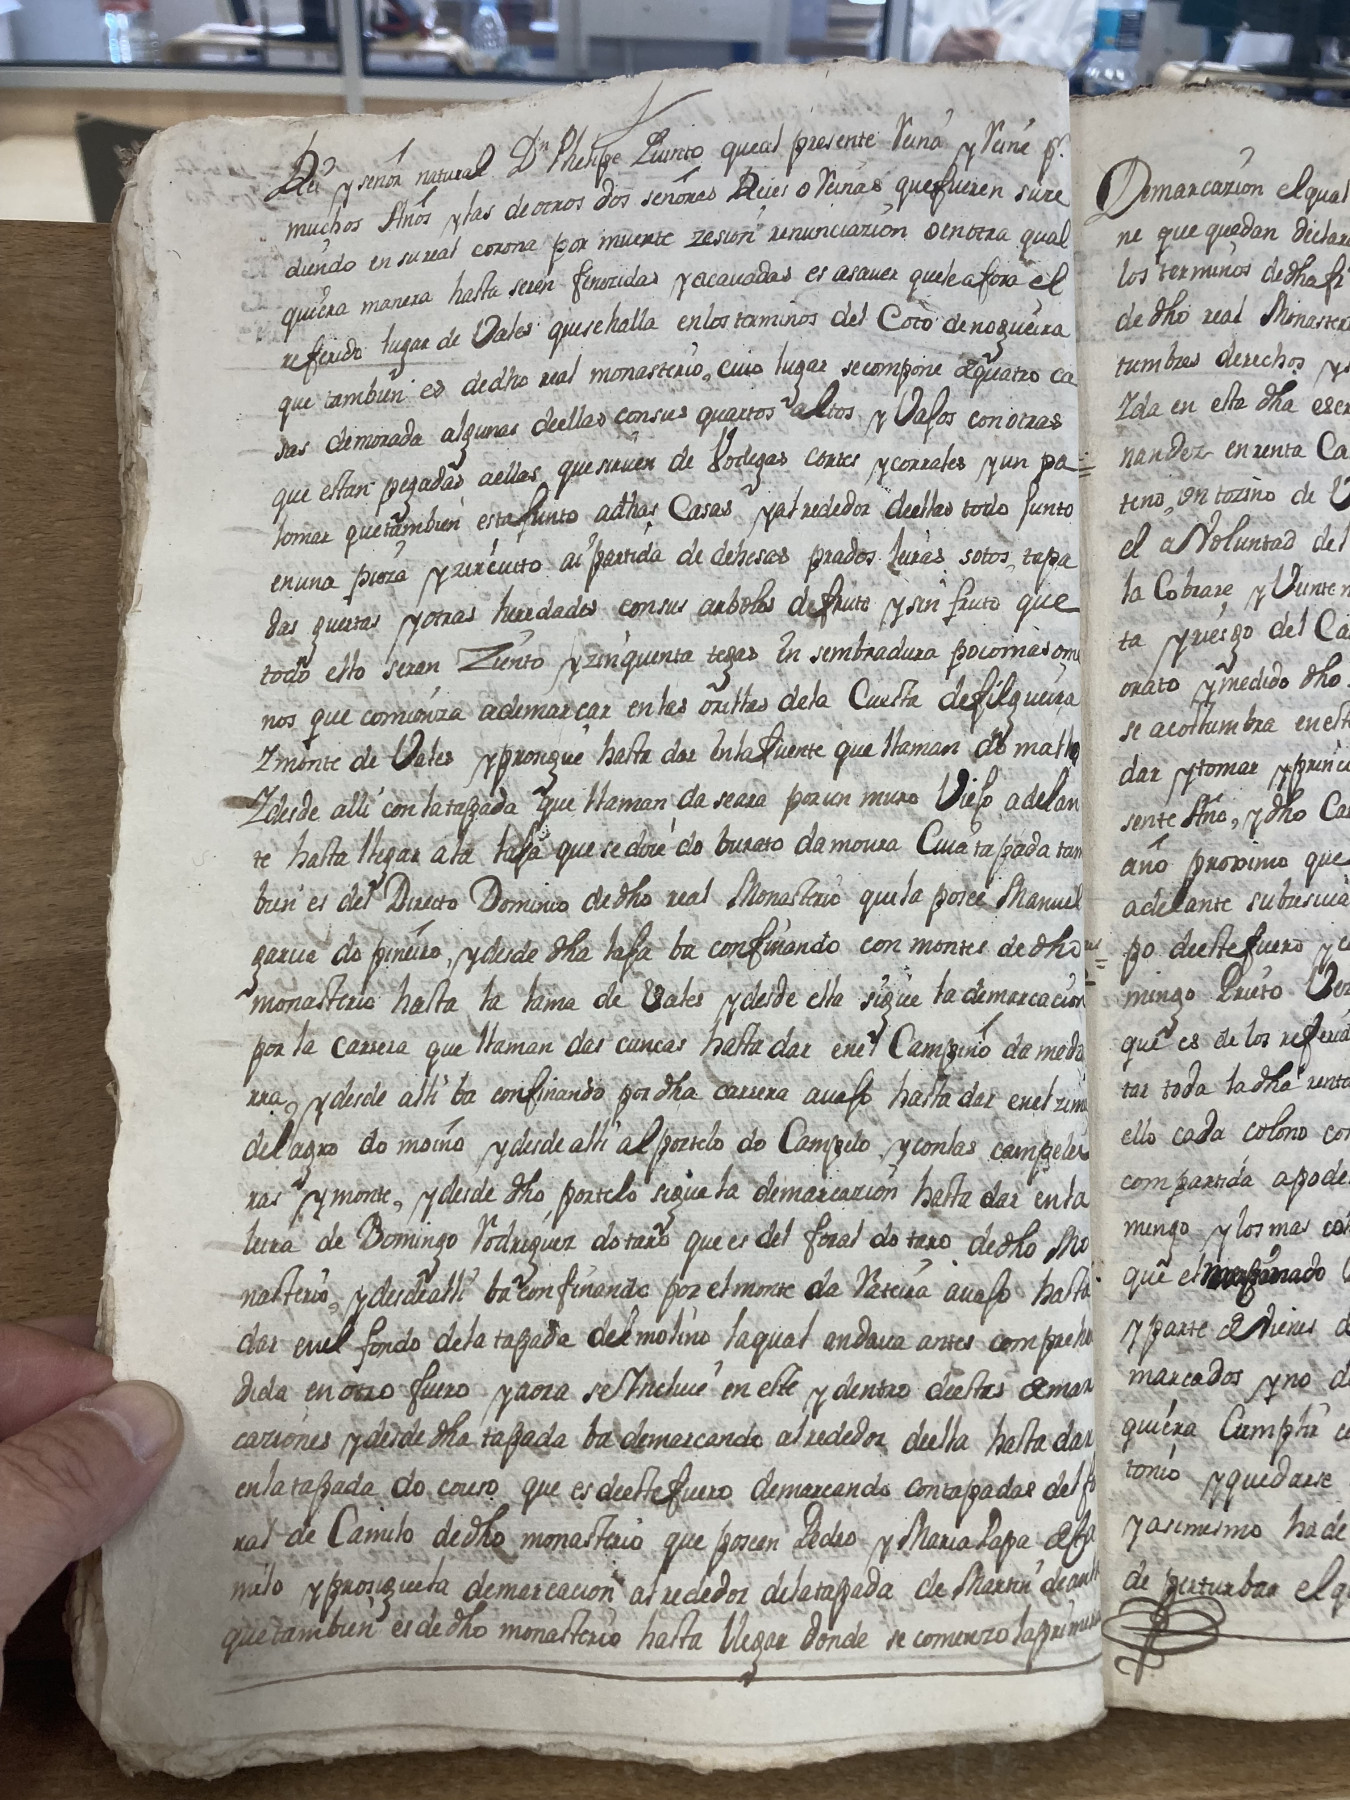 Rei y señor natural Dn Phelipe Quinto que al presente Reina y Reine pr.
muchos Años y las de otros dos señores Reies o Reinas que fueren suze
diendo en su real corona por muerte zesion renunciazion o en otra qual
quiera manera hasta seren fenezidas y acavadas es asaver que le afora el
referido lugar de Vales que se halla en los terminos del Coto de nogueira
que tambien es de dho real monasterio, cuio lugar se compone de quatro ca
sas de morada algunas de ellas con sus quartos altos y Vajos con otras
que estan pegadas a ellas que sirven de Bodegas cortes y corrales y un pa
lomar que tambien esta junto a dhas Casas y al rededor de ellas todo junto
en una pieza y zircuito ai partida de dehesas prados leiras sotos, tapa
das guertas y otras heredades con sus arboles de fruto y sin fruto que
todo ello seran Ziento y zinquenta tegas en sembradura poco mas o me
nos que comienza a demarcar en las orillas de la Cuesta de filgueira
Z monte de Vales y prosigue hasta dar en la fuente que llaman do matto
Z desde alli con la tapada que llaman da seara por un muro Viejo adelan
te hasta llegar a la laja que se dice do burato da moura Cuia tapada tam
bien es del Directo Dominio de dho real Monasterio que la posee Manuel
garcia do pineiro, y desde dha laja ba confinando con montes de dho
monasterio hasta la lama de Vales y desde ella sigue la demarcacion
por la carrera que llaman das cuncas hasta dar en el Campino da meda
rra, y desde alli ba confinando por dha carrera avajo hasta dar en el zima
del agro do moino y desde alli al portelo do Campelo y con las campelei
ras y monte, y desde dho portelo sigue la demarcazion hasta dar en la
leira de Domingo Rodriguez do taro que es del foral do taro de dho Mo
nasterio, y desde alli ba confinando por el monte da Rateira avajo hasta
dar en el fondo de la tapada del molino la qual andava antes comprehe
dida en otro fuero y aora se Incluie en este y dentro de estas demar
caziones y desde dha tapada ba demarcando al rededor de ella hasta dar
en la tapada do couso que es de este fuero demarcando con tapadas del fo
ral de Camilo de dho monasterio que poseen Pedro y Maria Papa
milo y prosigue la demarcacion al rededor de la tapada de Martin de
que tambien es de dho monasterio hasta llegar donde se comenzo la primera
Demarcazion el qual
ne que quedan declar
los terminos de dha fi
de dho real Monaster
tumbres derechos y
Zda en esta dha escr
nandez en renta Ca
teno, un tozino de
el a Voluntad del
la Cobrare y Vunte
ta y riesgo del Ca
orato y medido dho
se acostumbra en est
dar y tomar y princi
sente Año, y dho Ca
año proximo que
adelante subcesiva
po de este fuero y
mingo Prieto
que es de los referid
tar toda la dha renta
ello cada colono con
compartida a pode
mengo y los mas
que el
y parte de Vienes
marcados y no
quiera Cumplir
torio y quedarse
y asimesmo ha de
de perturbar el q